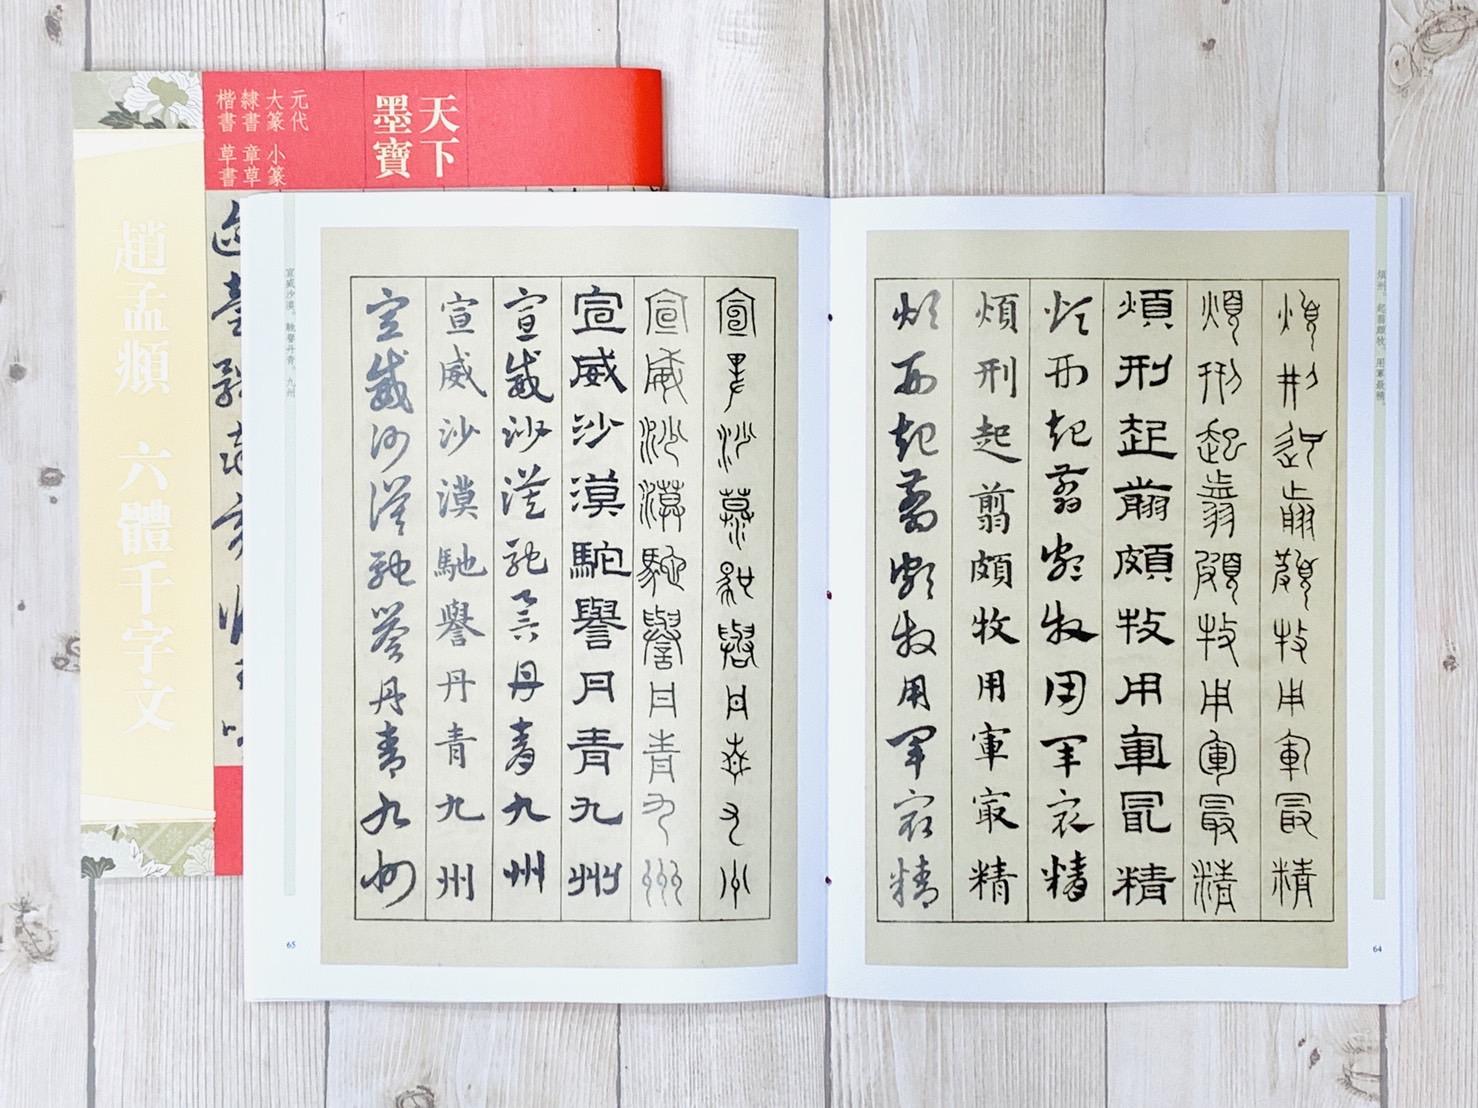 天下
墨寶
元代
大篆 小篆
隸書 章草
楷書 草書
趙孟頫 六體千字文
煩刑。起翦頗牧。用軍最精。
煩刑起翦頗牧用軍最精
煩刑起翦頗牧用軍最精
煩刑起翦頗牧用軍最精
煩刑起翦頗牧用軍最精
煩刑起翦頗牧用軍最精
煩刑起翦頗牧用軍最精
64
宣威沙漠馳譽丹青九州
宣威沙漠馳譽丹青九州
宣威沙漠馳譽丹青九州
宣威沙漠馳譽丹青九州
宣威沙漠馳譽丹青九州
宣威沙漠馳譽丹青九州
宣威沙漠。馳譽丹青。九州
65